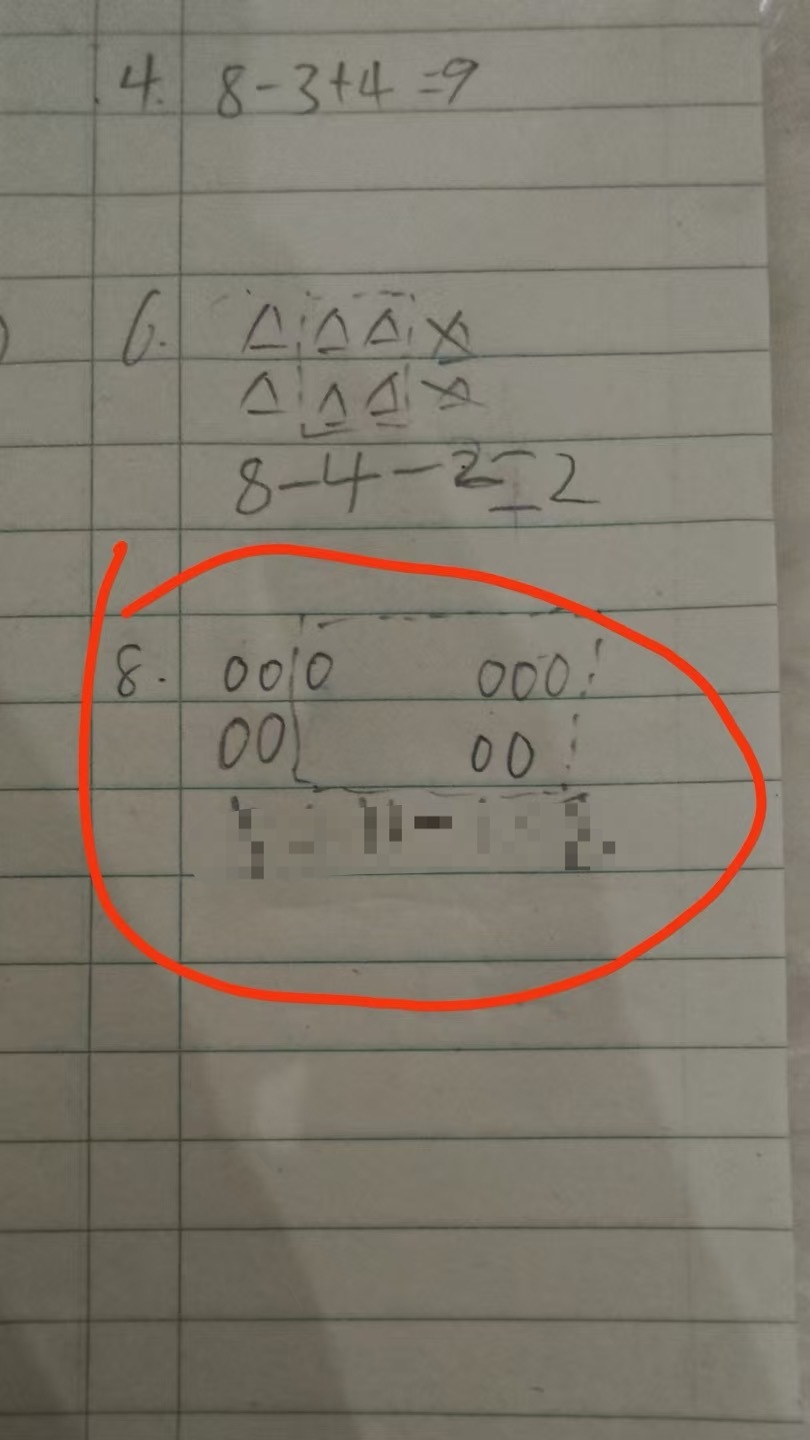 4. 8-3+4=9
6. △ △ △ △
△ △ △ △
8-4-2=2
8. 000 000
00 00